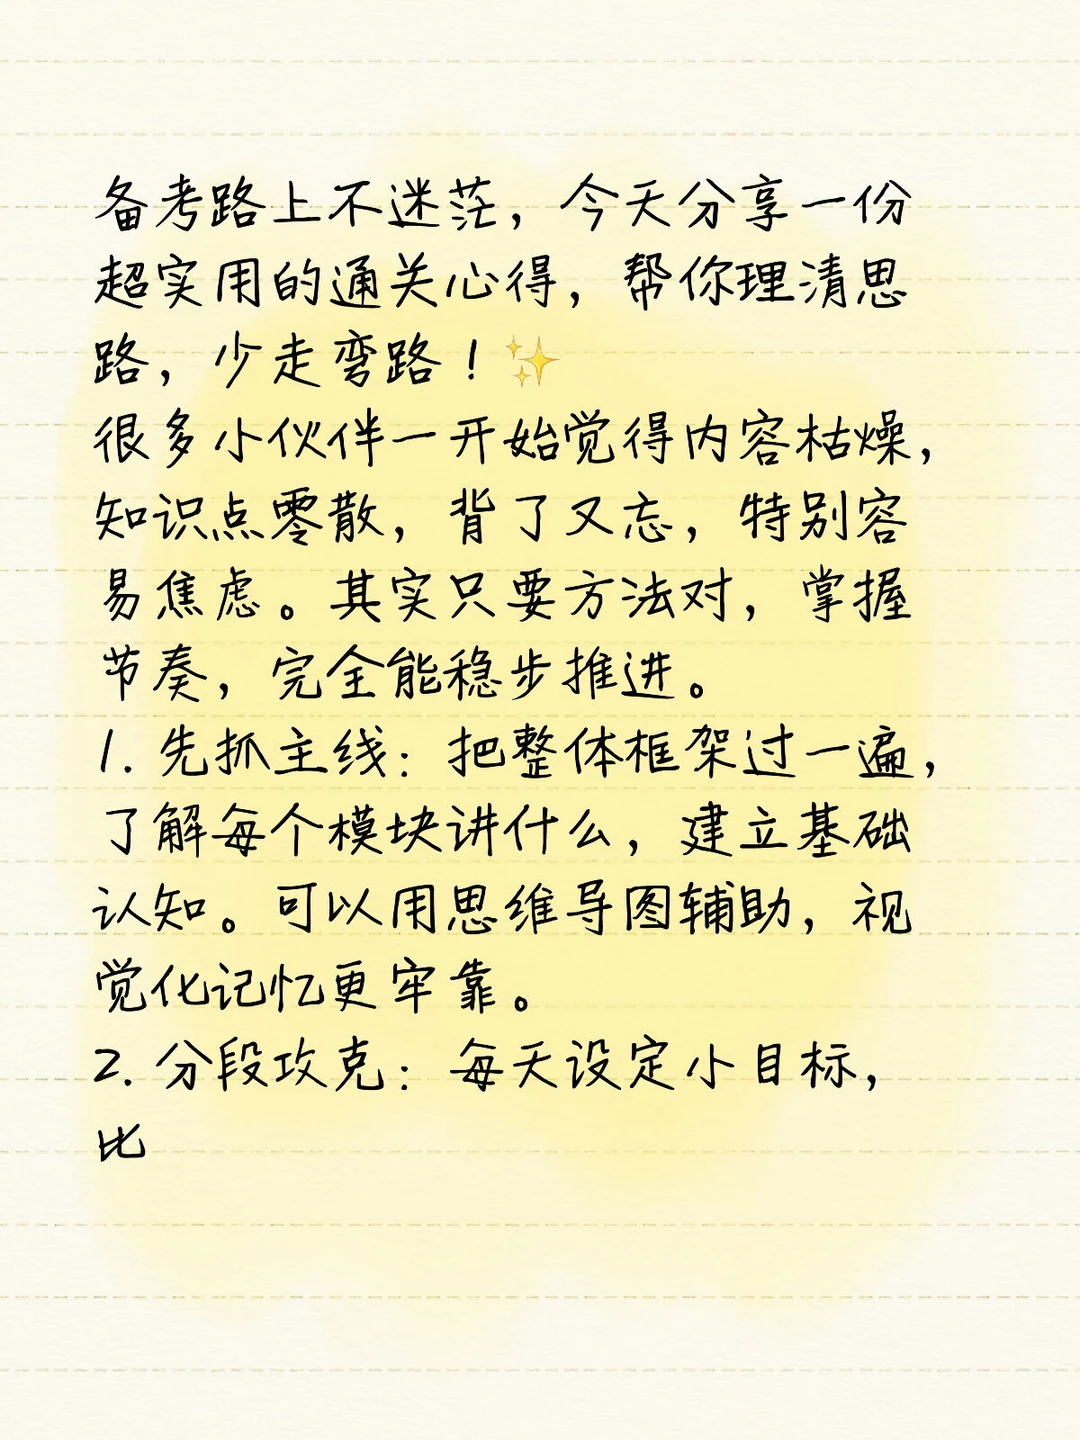 备考路上不迷茫，今天分享一份
超实用的通关心得，帮你理清思
路，少走弯路！✨
很多小伙伴一开始觉得内容枯燥，
知识点零散，背了又忘，特别容
易焦虑。其实只要方法对，掌握
节奏，完全能稳步推进。
1. 先抓主线：把整体框架过一遍，
了解每个模块讲什么，建立基础
认知。可以用思维导图辅助，视
觉化记忆更牢靠。
2. 分段攻克：每天设定小目标，
比